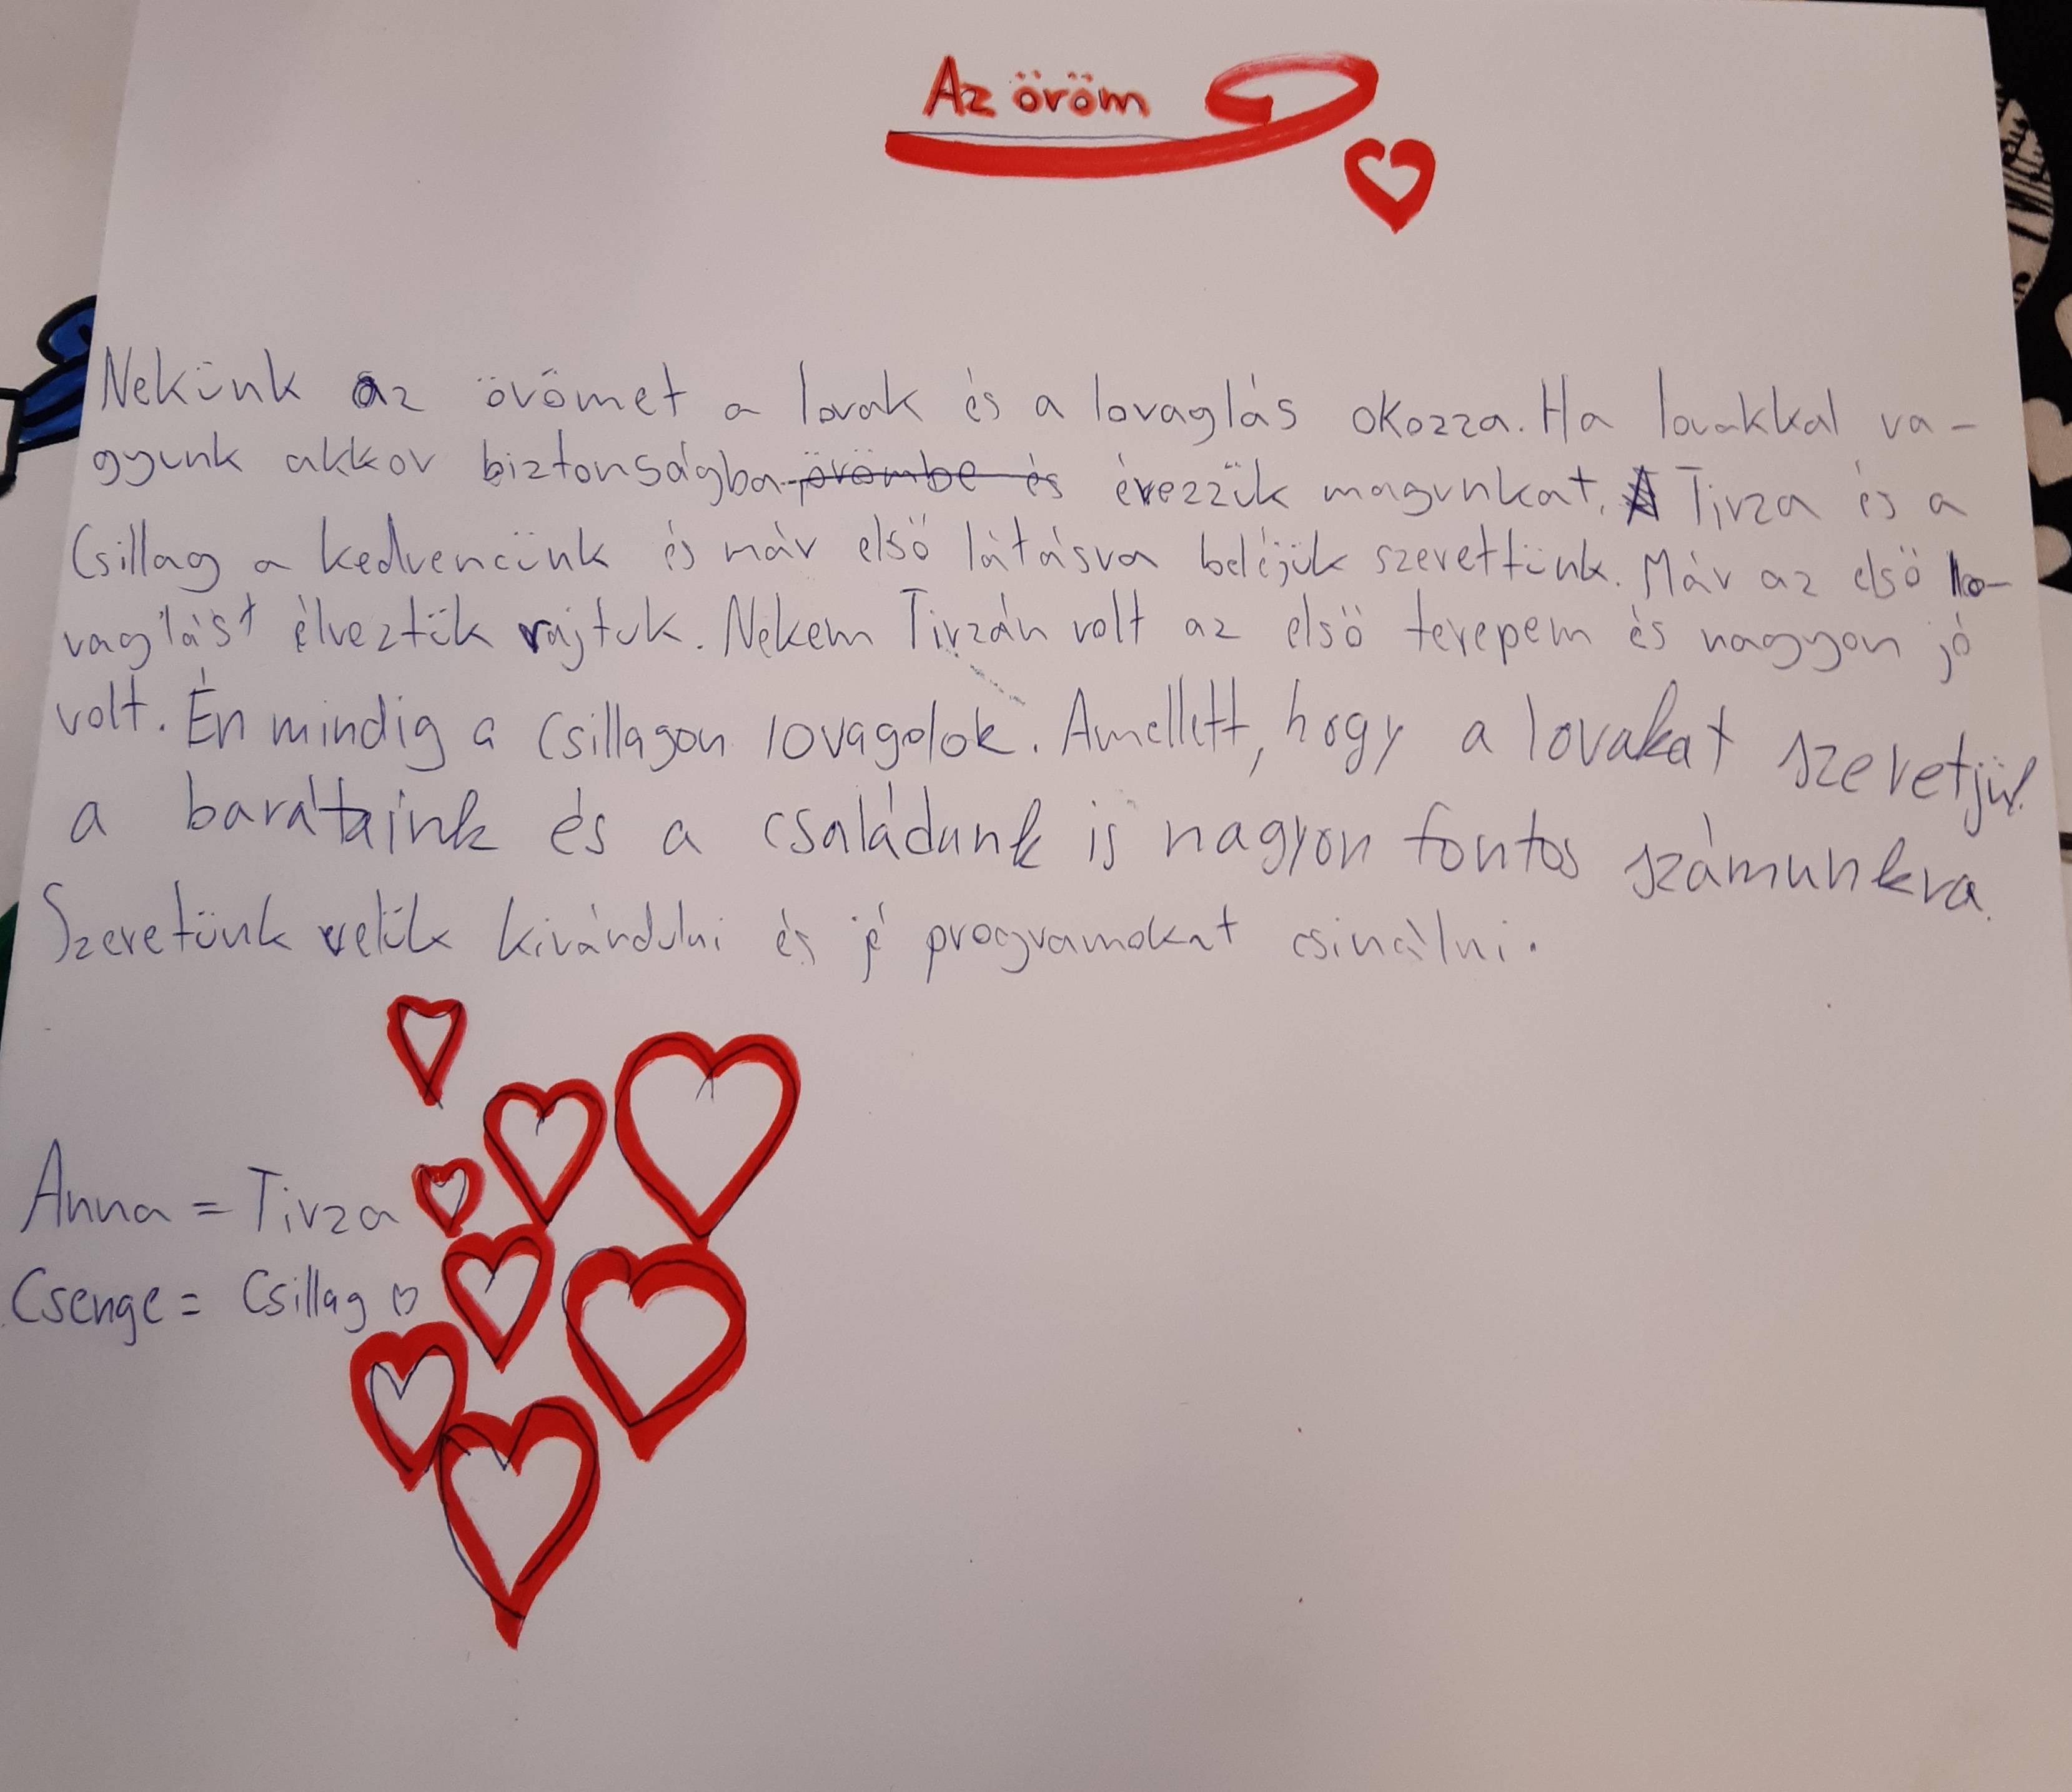 Az öröm
Nekünk az örömet a lovak és a lovaglás okozza. Ha lovakkal va-
gyunk akkor biztonságba örömbe és érezzük magunkat. A Tirza és a
Csillag a kedvencünk és már első látásra beléjük szerettünk. Már az első lo-
vaglást élveztük rajtuk. Nekem Tirzán volt az első terepem és nagyon jó
volt. Én mindig a Csillagon lovagolok. Amellett, hogy a lovakat szeretjük
a barátaink és a családunk is nagyon fontos számunkra.
Szeretünk velük kirándulni és jó programokat csinálni.
Anna = Tirza
Csenge = Csillag